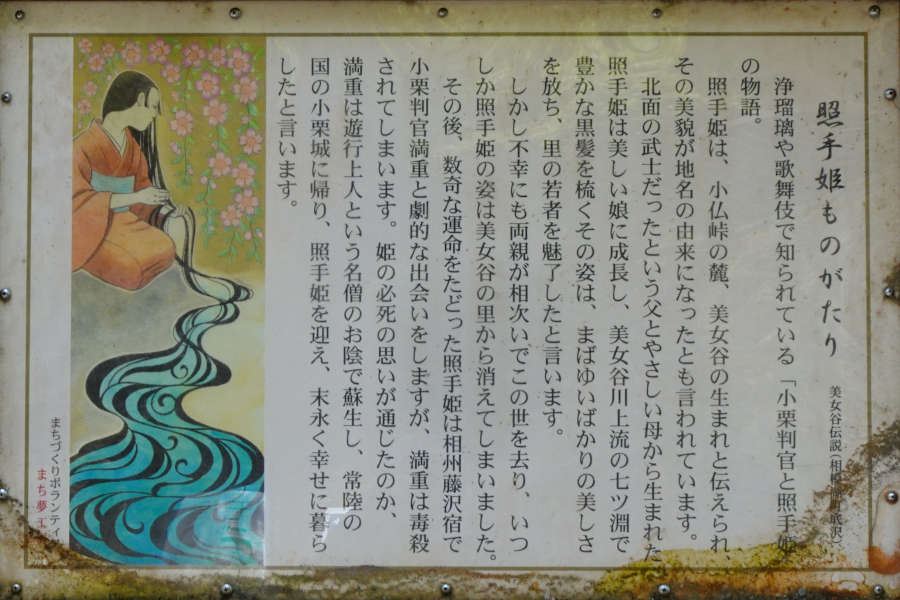 照手姫ものがたり
美女谷伝説(相
浄瑠璃や歌舞伎で知られている「小栗判官と照手姫
の物語。
照手姫は、小仏峠の麓、美女谷の生まれと伝えられ
その美貌が地名の由来になったとも言われています。
北面の武士だったという父とやさしい母から生まれた
照手姫は美しい娘に成長し、美女谷川上流の七ツ淵で
豊かな黒髪を梳くその姿は、まばゆいばかりの美しさ
を放ち、里の若者を魅了したと言います。
しかし不幸にも両親が相次いでこの世を去り、いつ
しか照手姫の姿は美女谷の里から消えてしまいました。
その後、数奇な運命をたどった照手姫は相州藤沢宿で
小栗判官満重と劇的な出会いをしますが、満重は毒殺
されてしまいます。姫の必死の思いが通じたのか、
満重は遊行上人という名僧のお陰で蘇生し、常陸の
国の小栗城に帰り、照手姫を迎え、末永く幸せに暮ら
したと言います。
まちづくりボランティ
まち夢工